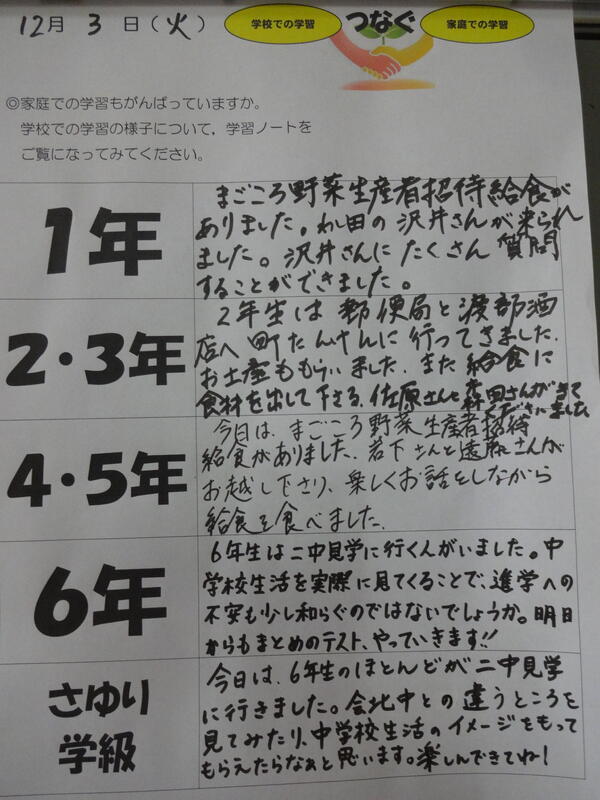 12月 3 日（火）
学校での学習
つなぐ
家庭での学習
◎家庭での学習もがんばっていますか。
学校での学習の様子について，学習ノートを
ご覧になってみてください。
1年
まごころ野菜生産者招待給食が
ありました。和田の沢井さんが来られ
ました。沢井さんにたくさん 質問
することができました。
2・3年
2年生は 郵便局と渡部酒
店へ 町たんけんに行ってきました。
お土産ももらいました。また給食に
食材を出して下さる、佐原さんと森田さんがきて
くださいました
4・5年
今日は、まごころ野菜生産者招待
給食がありました。岩下さんと遠藤さんが
お越し下さり、楽しくお話をしながら
給食を食べました。
6年
6年生は二中見学に行くんがいました。中
学校生活を実際に見てくることで、進学への
不安も少し和らぐのではないでしょうか。明日
からもまとめのテスト、やっていきます!!
さゆり
学級
今日は、6年生のほとんどが二中見学
に行きました。会北中との違うところを
見てみたり、中学校生活のイメージをもって
もらえたらなぁと思います。楽しんできてね！